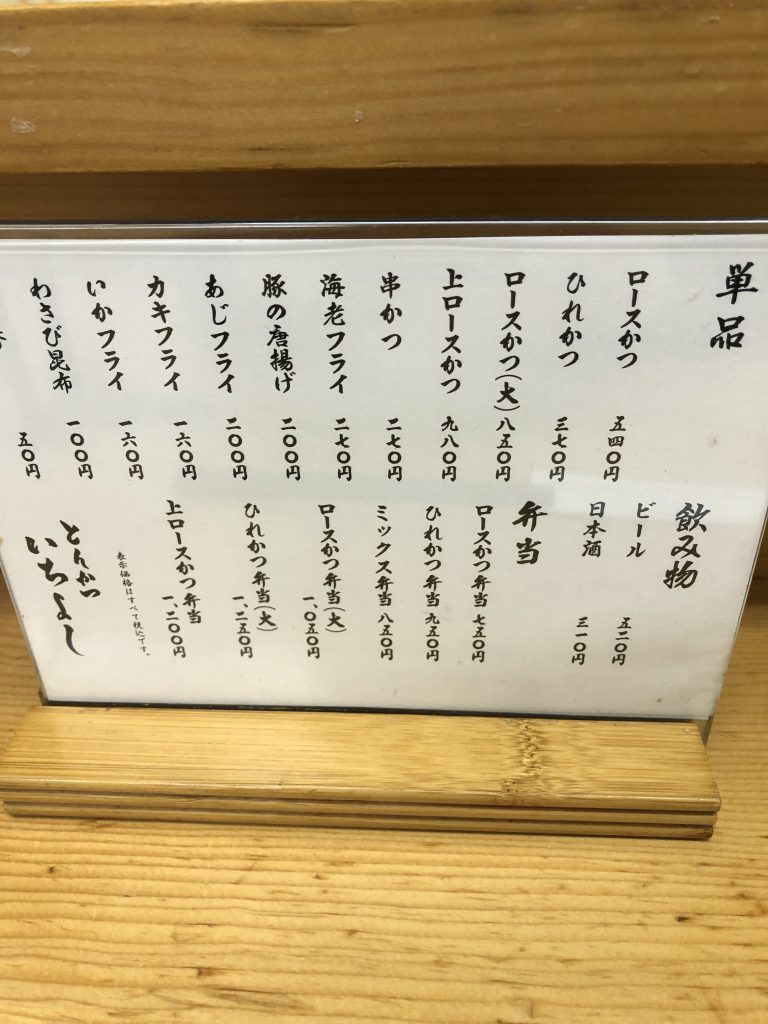 単品
ロースかつ 五四〇円
ひれかつ 三七〇円
ロースかつ(大) 八五〇円
上ロースかつ 九八〇円
串かつ 二七〇円
海老フライ 二七〇円
豚の唐揚げ 二〇〇円
あじフライ 二〇〇円
カキフライ 一六〇円
いかフライ 一六〇円
わさび昆布 一〇〇円
五〇円
飲み物
ビール 五二〇円
日本酒 三一〇円
弁当
ロースかつ弁当 七五〇円
ひれかつ弁当 九五〇円
ミックス弁当 八五〇円
ロースかつ弁当(大) 一、〇五〇円
ひれかつ弁当(大) 一、二五〇円
上ロースかつ弁当 一、二〇〇円
表示価格はすべて税込です。
とんかつ
いちよし